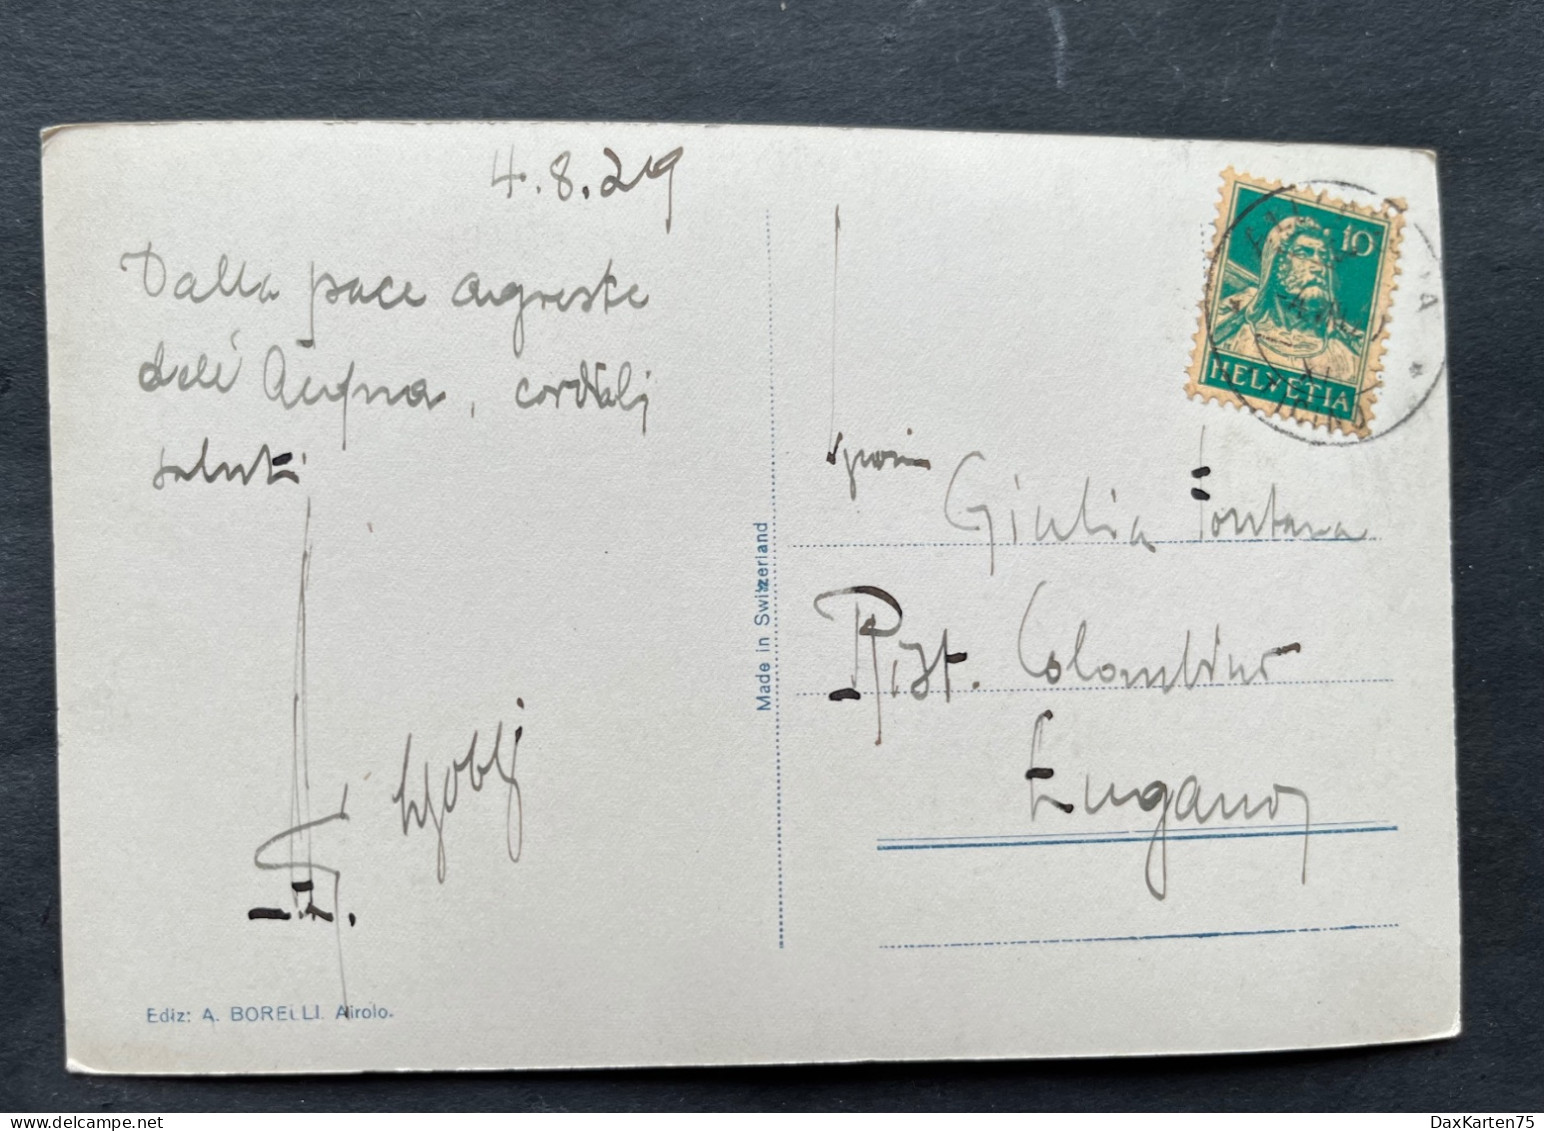 4.8.29
Dalla pace agreste
dell'Acqua, cordiali
saluti
Ediz: A. BORELLI. Airolo.
Made in Switzerland
10
HELVETIA
Giulia Fontana
Rist. Colombino
Lugano
DaxKarten75